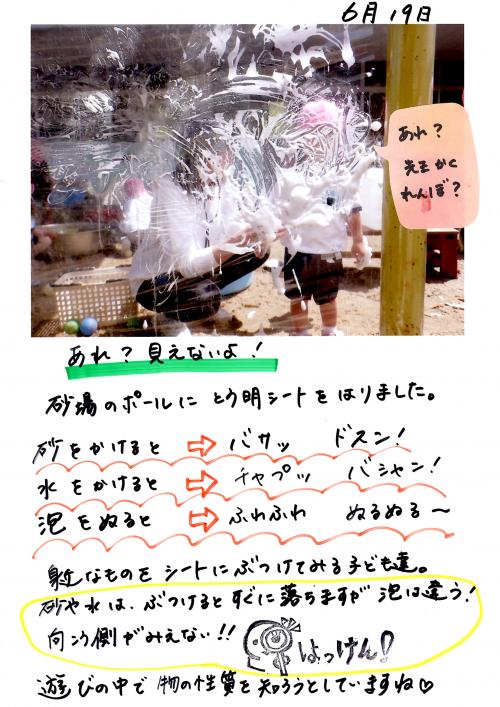 6月19日
あれ？
先生かく
れんぼ？
あれ？見えないよ！
砂場のポールにとう明シートをはりました。
砂をかけると⇨バサッ ドスン！
水をかけると⇨チャプッ バシャン！
泡をぬると⇨ふわふわ ぬるぬる〜
身近なものをシートにぶつけてみる子ども達。
砂や水は、ぶつけるとすぐに落ちますが泡は違う！
向こう側がみえない!!
はっけん！
遊びの中で物の性質を知ろうとしていますね♡